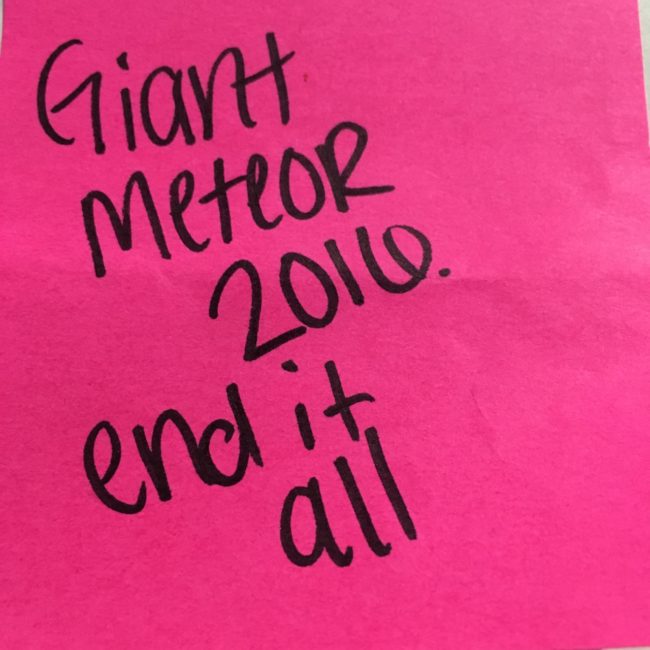 Giant
Meteor
2016.
end it
all